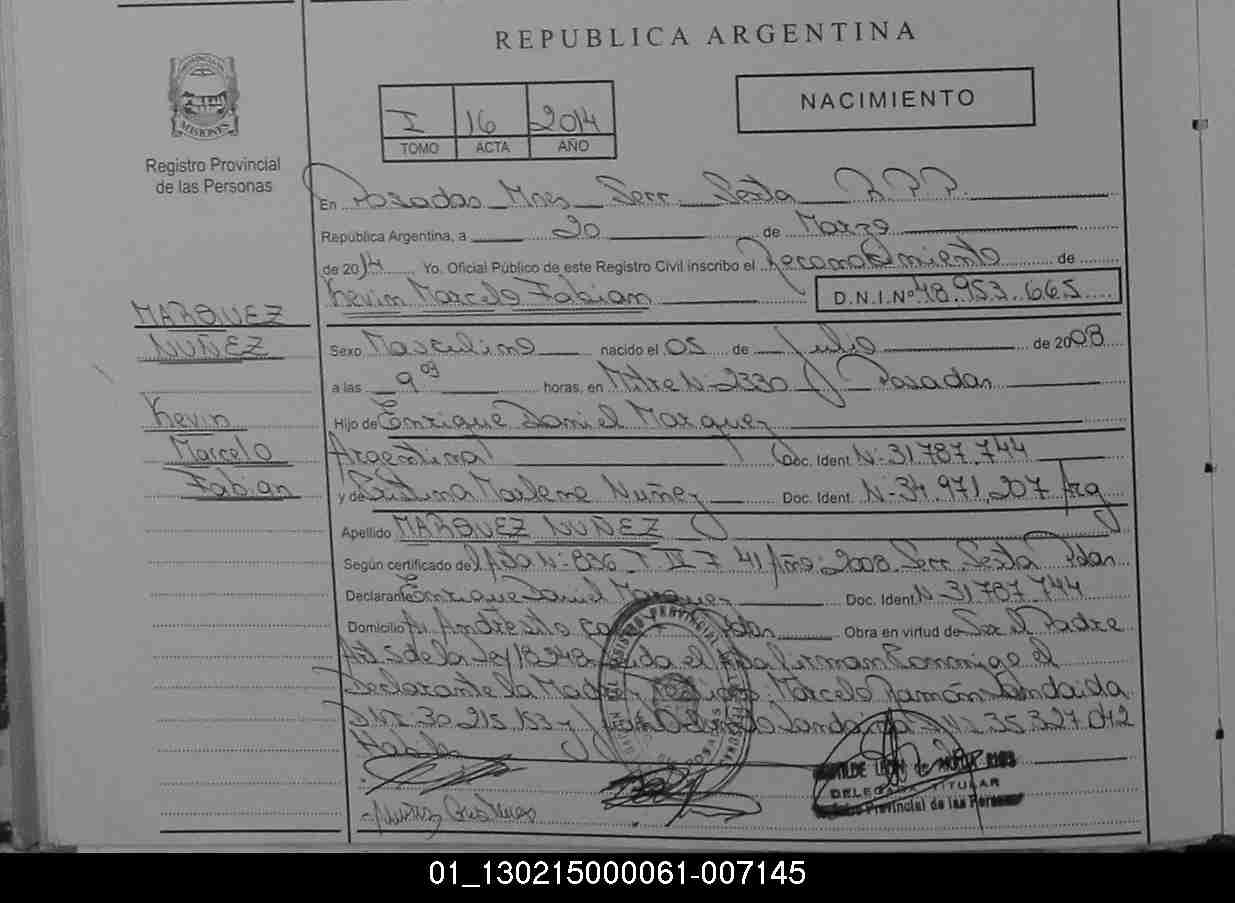 REPUBLICA ARGENTINA
MISIONES
Registro Provincial
de las Personas
I 16 2014
TOMO ACTA AÑO
NACIMIENTO
En Posadas Mnes Secc. Sexta R.P.P.
República Argentina, a 20 de Marzo
de 2014 Yo. Oficial Público de este Registro Civil inscribo el Reconocimiento de
Kevin Marcelo Fabian D.N.I. Nº 48.953.665
MARQUEZ
NUÑEZ
Kevin
Marcelo
Fabian
Sexo Masculino nacido el 05 de Julio de 2008
a las 9 09 horas, en Mitre N-2330 Posadas
Hijo de Enrique Daniel Marquez
Argentina Doc. Ident N-31.787.744
y de Cristina Marlene Nuñez Doc. Ident. N-34.971.207 Arg
Apellido MARQUEZ NUÑEZ
Según certificado de N-836 T II F 41 Año: 2008 Secc. Sexta Pdas
Declarante Enrique Daniel Marquez Doc. Ident. N-31787.744
Domicilio Andresito Pdas Obra en virtud de Ser el Padre
Art. 5 de la Ley 18248. el
Declarante la Madre y Marcelo Ramón Landaida
DNI. 30.215.153 y 35.327.042
DELEGADA TITULAR
Provincial de las Personas
01_130215000061-007145